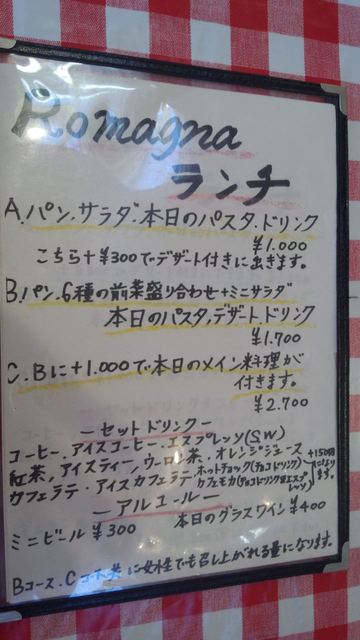 Romagna
ランチ
A.パン.サラダ.本日のパスタ.ドリンク
¥1.000
こちら+¥300でデザート付きに出きます。
B.パン.6種の前菜盛り合わせ+ミニサラダ
本日のパスタ,デザート.ドリンク
¥1.700
C.Bに+1.000で本日のメイン料理が
付きます。
¥2.700
ーセットドリンクー
コーヒー.アイスコーヒー.エスプレッソ(S.W)
紅茶,アイスティー,ウーロン茶.オレンジジュース
カフェラテ・アイスカフェラテ・ホットチョック(チョコドリンク)
カフェモカ(チョコドリンク+エスプレッソ)
+150円になります。
ーアルコールー
ミニビール¥300 本日のグラスワイン¥400
Bコース.Cコース共に女性でも召し上がれる量になります。